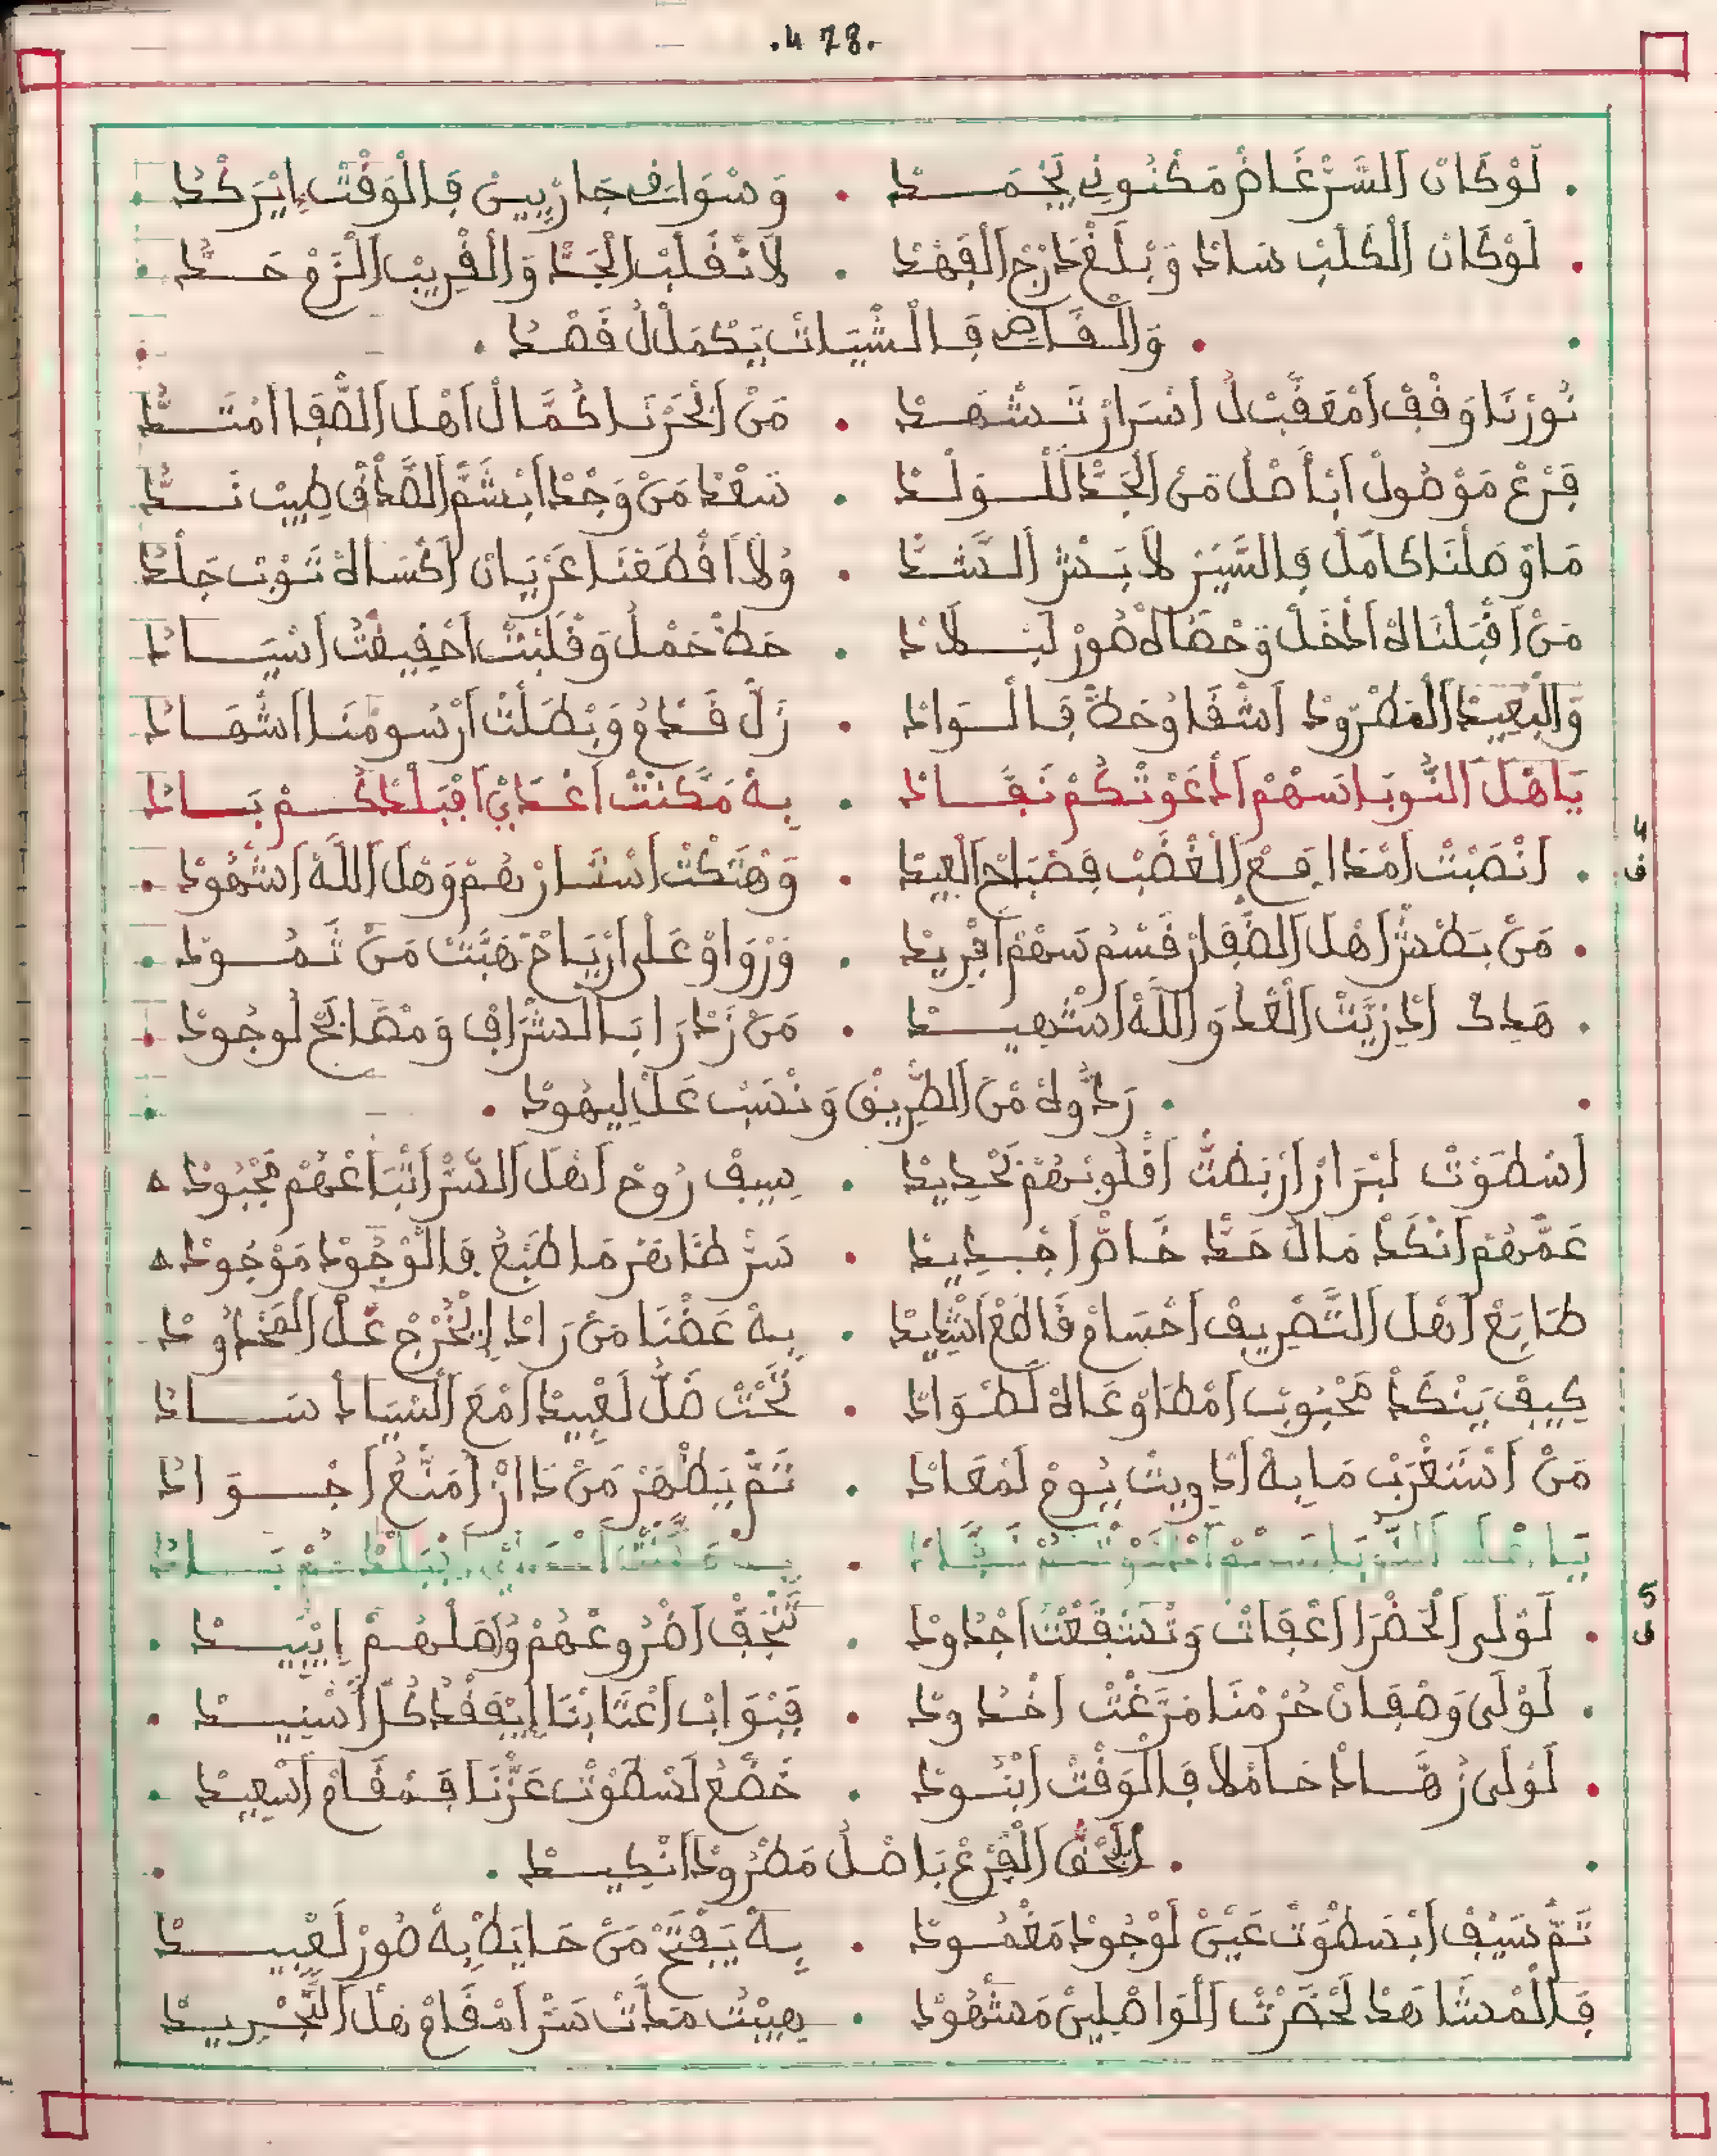 .478.
لَوْكَانْ اَلسَّرّْ غَاضْ مَكْنُونِي يَجْمَدْ . وَسْوَافِ جَارْيِينْ فِالْوَقْتْ اِيْرَكْدُ
لَوْكَانْ اَلْكَلْبْ سَادْ وَبْلَغْ دَرْجْ اَلْفَهْدْ . لَانْقَلْبْ اَلْجَدّْ وَالْقْرِيبْ اَلْزَمْ حَدُّ
وَالْقَاضِي فِالْشْيَاتْ يَكْمَلْ لُ قَصْدُ
نُورْنَا وَقْفْ اَمْعَقَّبْ لُ اَسْرَارْ تَشْهَدْ . مَنْ اَبْحَرْنَا كُمَّالْ اَهْلْ اَلصّْفَا اَمْتَدُّ
فَرْعْ مَوْصُولْ اَبْأَصْلُ مَنْ اَلْجَدّْ اَلْلُولْدْ . سَعْدْ مَنْ وَجْدْ اَبْشَمّْ اَلصَّادْقْ طِيبْ نَدُّ
مَاوْصَلْنَا كَامَلْ فِالسِّيرْ لَا بَدْرْ اَلْسَّدَّ . وُلَا اَقْطَعْنَا عَرْيَانْ اَكْسَاهْ ثَوْبْ جَلْدُ
مَنْ اَقْبَلْنَاهْ اَدْخَلْ وَحْضَاهْ صُورْ لَبْلَادْ . حَطّْ حَمْلُ وَقْلَبْتْ اَحْقِيقْتُ اَسْيَادُ
وَالْبْعِيدْ اَلْمَطْرُودْ اَشْقَا وُخَطَّ فِالْسْوَادْ . زَلّْ قَدْمُ وَبْطَلْتْ اَرْسُومْنَا اَشْهَادُ
يَاهْلَ اَلنُّوبَا سَهْمْ اَدْعَوْتْكُمْ نَفَّادْ . بِهْ مَكَّنْتْ اَعْدَايْ اَقْبَلْدْكُمْ بَادُ
4
ف
اَنْصَبْتْ اَمْدَافَعْ اَلْغْضَبْ فِصْبَاحْ اَلْعِيدْ . وَهْتَكْتْ اَسْتَارْهُمْ وَهْلَ اَللَّهْ اَشْهُودْ
مَنْ بَطْشْ اَهْلَ اَلصّْفَا رْفَسْهُمْ سَهْمْ اَفْرِيدْ . وَرْوَاوْ عَلَى اَرْيَاحْ هَبَّتْ مَنْ ثَمُودْ
هَدِكْ اَدْزِيَّتْ اَلْعْدُ وَاللَّهْ اَشْهِيدْ . مَنْ زَدْرَا بَالشّْرَافِ وَمْصَابَحْ لَوْجُودْ
رَدُّوهْ مْنَ اَلطّْرِيقْ وَنْصَبْ عَلْ لِيهُودْ
اَسْطَوْتْ لَبْرَارْ اَرْبَطْتُّ اَقْلُوبْهُمْ تَحْدِيدْ . سِيفْ رُوحْ اَهْلَ اَلسَّرّْ اَتْبَاعْهُمْ مَجْبُودْ
عَمَّرْهُمْ اَنْكَدْ مَالْ حَدّْ خَاصّْ اَجْدِيدْ . سَرّْ طَاهَرْ مَا طَبْعُ فَالْوْجُودْ مَوْجُودْ
طَابَعْ اَهْلَ اَلتَّصْرِيفْ اَحْسَامْ قَاطَعْ اَشْدِيدْ . بِهْ عَضْنَا مَنْ رَادْ اِيْخْرُجْ عَلْ اَلْمَحْدُودْ
كِيفْ يَنْكَدْ مَحْبُوبْ اَمْطَاوْعَاهْ لَطْوَادْ . تَحْتْ ضَلّْ لَعْبِيدْ اَمْعَ اَلسْيَادْ سَادُ
مَنْ اَسْتَغْرَبْ مَابِهْ اَدْوِيتْ يُومْ لَمْعَادْ . ثَمّْ يَطْهَرْ مَنْ دَازْ اَمْتَعْ اَجْوَادُ
يَاهْلَ اَلنُّوبَا سَهْمْ اَدْعَوْتْكُمْ نَفَّادْ . بِهْ مَكَّنْتْ اَعْدَايْ اَقْبَلْدْكُمْ بَادُ
5
ف
لَوْلَى اَلْحَضْرَا اَعْفَاتْ وَتْشَفَّعْتْ اَجْدُودْ . تَّنْجَفّْ اَضْرُوعْهُمْ وَصَلْهُمْ اِيْبِيدْ
لَوْلَى وَصْفَانْ حُرْمْنَا مَرَّغْتْ اَخْدُودْ . فِبْوَابْ اَعْتَابْنَا اِيْفَقْدْ كُلّْ اَسْنِيدْ
لَوْلَى زَهَّادْ حَامْلَا فِالْوَقْتْ اَبْنُودْ . خَضَّعْ لَسْطَوْتْ عَزّْنَا فِمْقَامْ اَسْعِيدْ
اَيْلَحْقْ اَلْفَرْعْ بَاصْلُ مَطْرُودْ اَنْكِيدْ
ثَمّْ سَيْفْ اَبْسَطْوَتْ عَيْنْ لَوْجُودْ مَغْمُودْ . بِهْ يَفْتَحْ مَنْ حَايَطْ بِهْ صُورْ لَعْبِيدْ
فَالْمْشَاهَدْ لَحْضَرْتْ اَلْوَاصْلِينْ مَشْهُودْ . هِيبْتْ مَدَّتْ سَرّْ اَمْقَامْ هَلْ اَلتَّجْرِيدْ